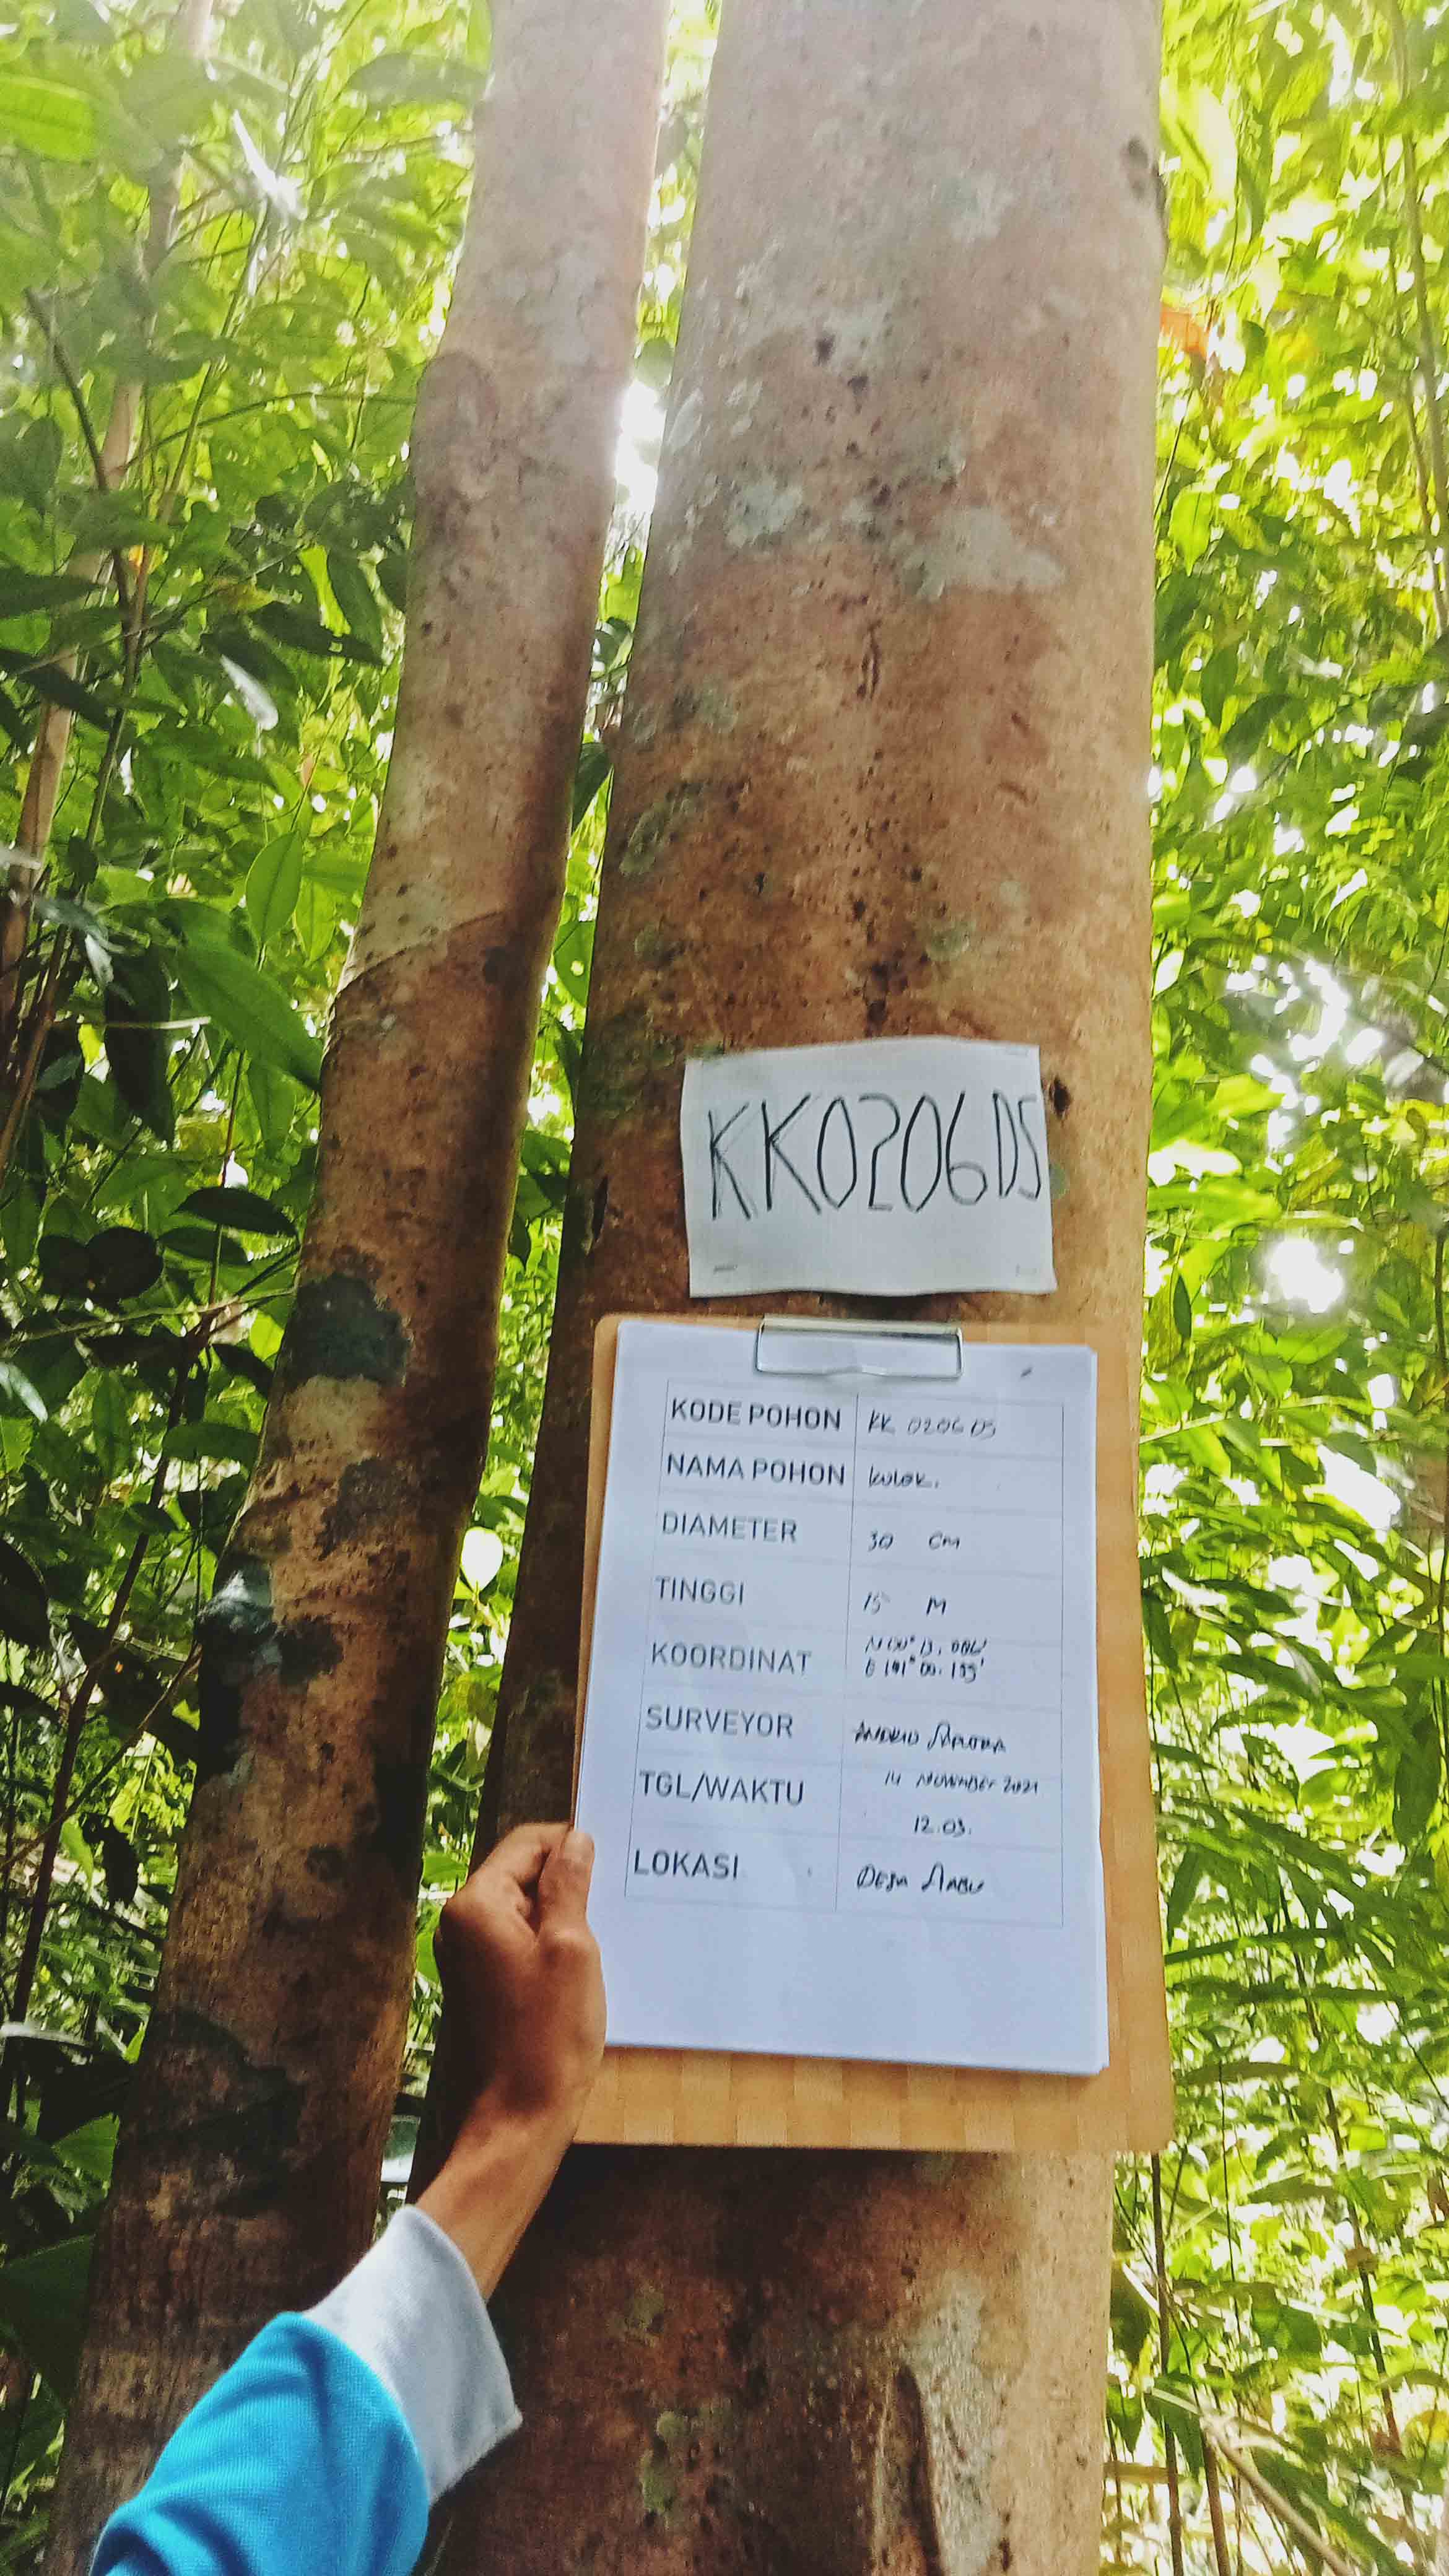 KK0206DS
KODE POHON KK 0206 DS
NAMA POHON kulok.
DIAMETER 30 CM
TINGGI 15 M
KOORDINAT N 00° 13.
E 101° 00. 155'
SURVEYOR
TGL/WAKTU 14 NOVEMBER 2021
12.03.
LOKASI DESA